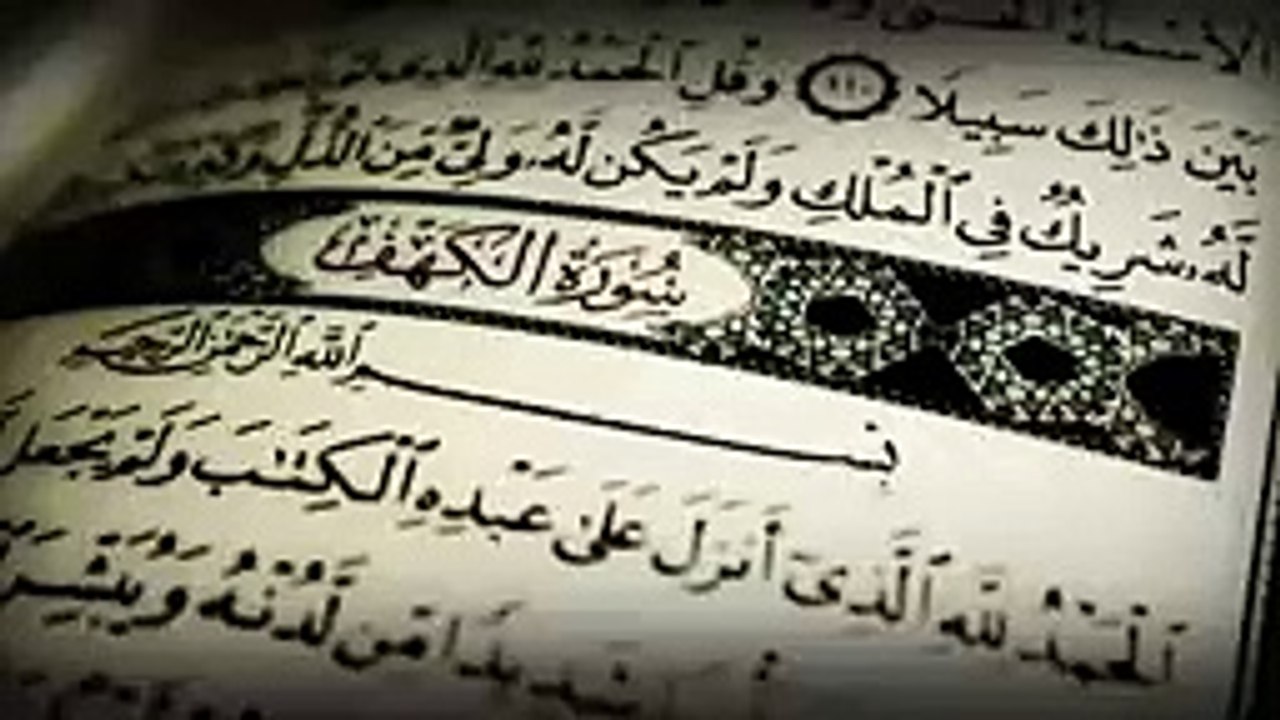 الأسماء الحسنى
بَيْنَ ذَٰلِكَ سَبِيلًا ١١٠ وَقُلِ ٱلْحَمْدُ لِلَّهِ ٱلَّذِى لَمْ
لَّهُۥ شَرِيكٌ فِى ٱلْمُلْكِ وَلَمْ يَكُن لَّهُۥ وَلِىٌّ مِّنَ ٱلذُّلِّ وَكَبِّرْهُ
سُورَةُ الكَهْفِ
بِسْمِ ٱللَّهِ ٱلرَّحْمَٰنِ ٱلرَّحِيمِ
ٱلْحَمْدُ لِلَّهِ ٱلَّذِىٓ أَنزَلَ عَلَىٰ عَبْدِهِ ٱلْكِتَٰبَ وَلَمْ يَجْعَل
شَدِيدًا مِّن لَّدُنْهُ وَيُبَشِّرَ